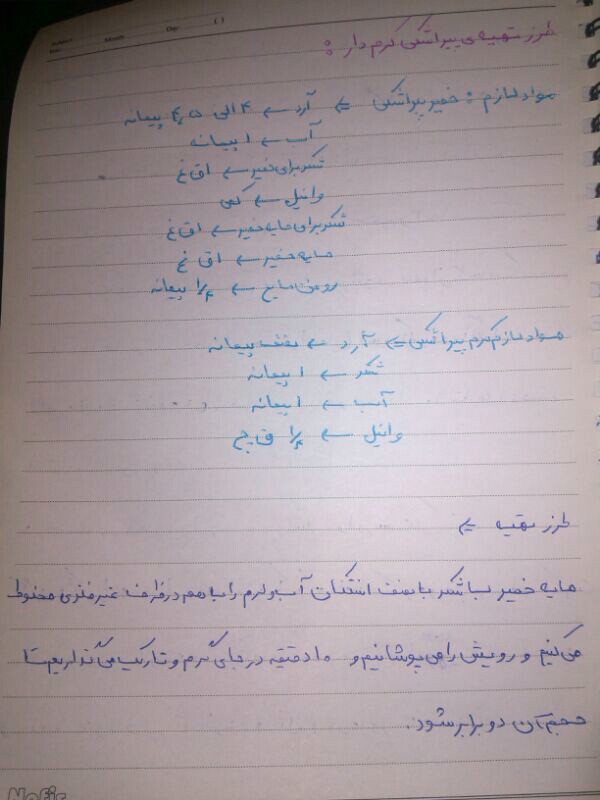 Subject:
Month.
Day.
( )
طرز تهیه ی پیراشکی کرم دار :
مواد لازم : خمیر پیراشکی ⇐ آرد ← ۴ الی ۴٫۵ پیمانه
آب ← ۱ پیمانه
شکر برای خمیر ← ۱ق غ
وانیل ← کمی
شکر برای مایه خمیر ← ۱ق غ
مایه خمیر ← ۱ق غ
روغن مایع ← ۱/۴ پیمانه
مواد لازم کرم پیراشکی ⇐ آرد ← نصف پیمانه
شکر ← ۱ پیمانه
آب ← ۱ پیمانه
وانیل ← ۱/۴ ق چ
طرز تهیه ⇐
مایه خمیر با شکر با نصف استکان آب ولرم را با هم در ظرف غیر فلزی مخلوط
می کنیم و رویش را می پوشانیم و ۱۰ دقیقه در جای گرم و تاریک می گذاریم تا
حجم آن دو برابر شود.
Nafis